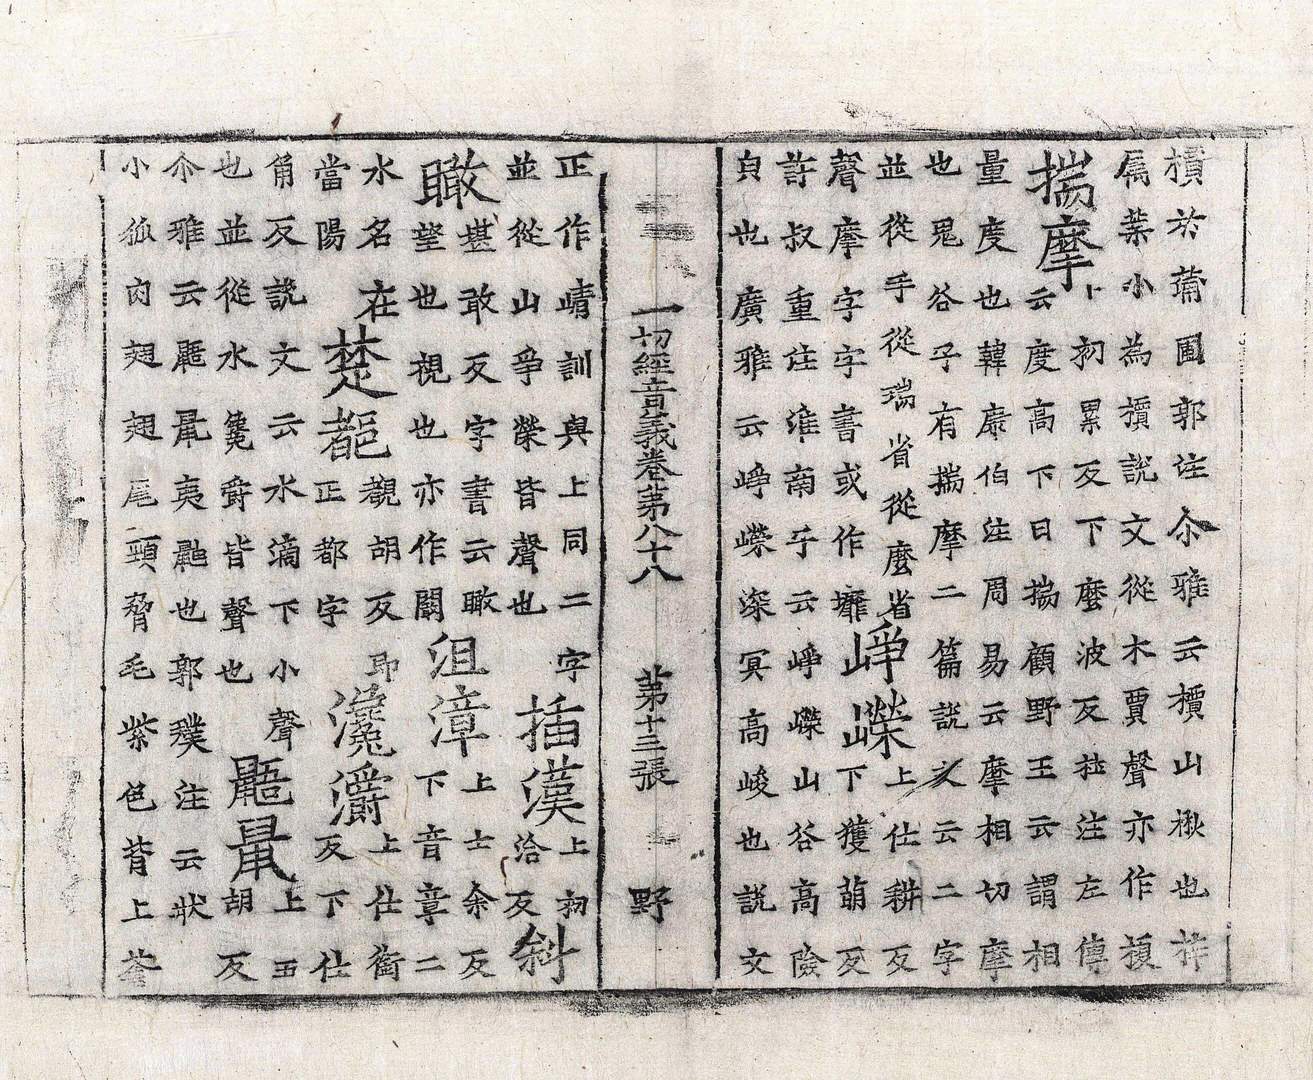 檟於蕾圃郭注尒雅云檟山楸也梓
属葉小為檟說文從木賈聲亦作榎
揣摩上初累反下麼波反杜注左傳
云度高下曰揣顧野王云謂相
量度也韓康伯注周易云摩相切摩
也鬼谷子有揣摩二篇說文云二字
並從手從瑞省從麼省崢嶸上仕耕反下獲萌反
聲摩字字書或作㩋
許叔重注淮南子云崢嶸山谷高險
皃也廣雅云崢嶸深冥高峻也說文
一切經音義卷第八十八 第十三張 野
正作崝訓與上同二字
並從山爭榮皆聲也 插漢上初洽反 斜
瞰堪敢反字書云瞰
望也視也亦作闞 沮漳上士余反下音章二
水名在
當陽 楚都覩胡反正都字 瀺灂上仕銜反下仕
角反說文云水滴下小聲
也並從水毚爵皆聲也 鼯鼠上五胡反
尒雅云鼯鼠夷鼬也郭璞注云狀
小狐肉翅翅尾頸脅毛紫色背上蒼